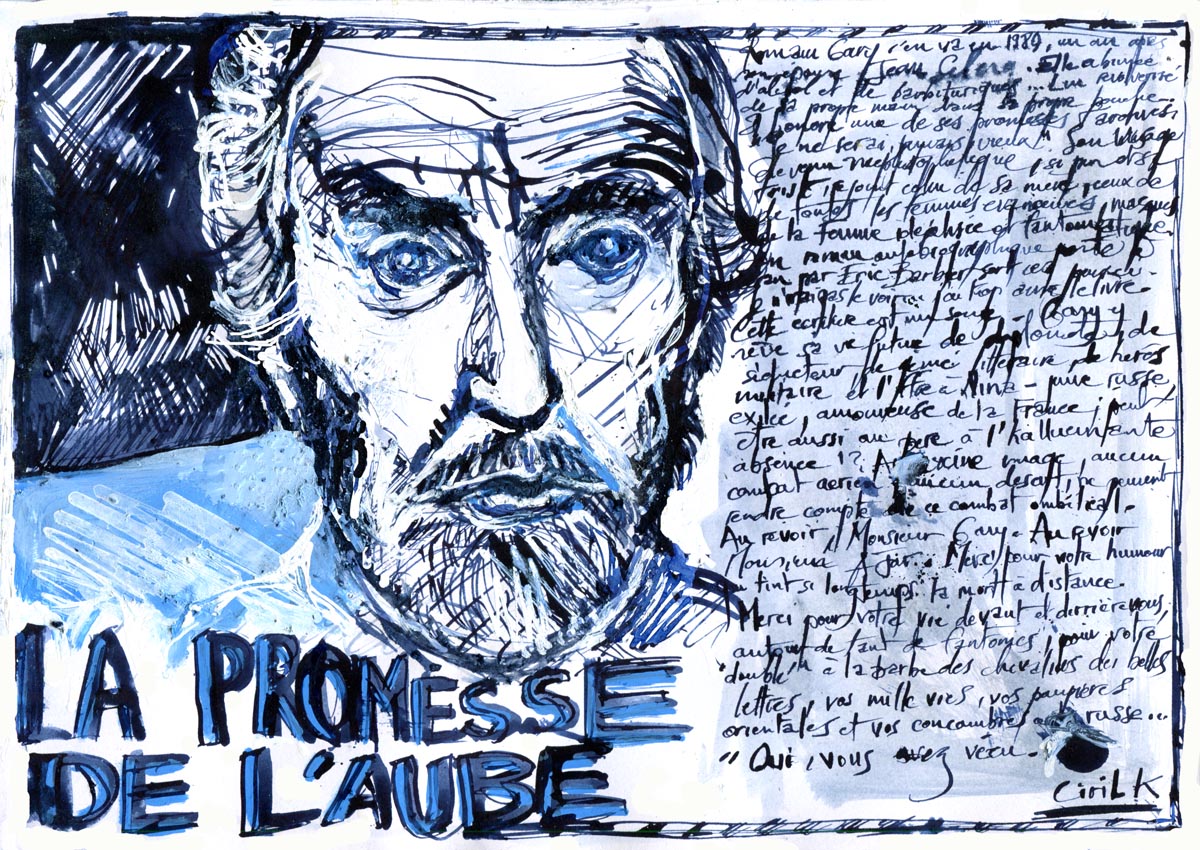 LA PROMESSE
DE L'AUBE
Romain Gary s'en va en 1980, un an après
son épouse Jean Seberg. Elle abimée
d'alcool et de barbituriques... Lui revolverisé
de sa propre main dans sa propre
Il honore une de ses promesses archivées
"je ne serai jamais vieux". Son visage
devenu méphistophélique, si
triste, rejoint celui de sa mère, ceux de
de toutes les femmes
de la Femme idéalisée et fantomatique.
Son roman autobiographique porté à
l'écran par Eric Barbier sort ces jours-ci.
Je n'irai pas le voir. J'ai trop aimé le livre.
Cette écriture est une - Gary y
rêve sa vie future de diplomate, de
séducteur, de génie littéraire, de héros
militaire et l'offre à Nina - juive russe,
exilée, amoureuse de la France; peut
être aussi au père à l'hallucinante
absence !? Aucune image, aucun
combat aerien, aucun désert, ne peuvent
rendre compte de ce combat ombilical.
Au revoir, Monsieur Gary. Au revoir
Monsieur Ajar. Merci pour votre humour
tint si longtemps la mort à distance.
Merci pour votre vie devant et derrière vous,
autour de tant de fantomes; pour votre
"double" à la barbe des chevaliers des belles
lettres, vos mille vies, vos paupières
orientales et vos concombres à russe...
"Oui, vous avez vécu.
CiriL K